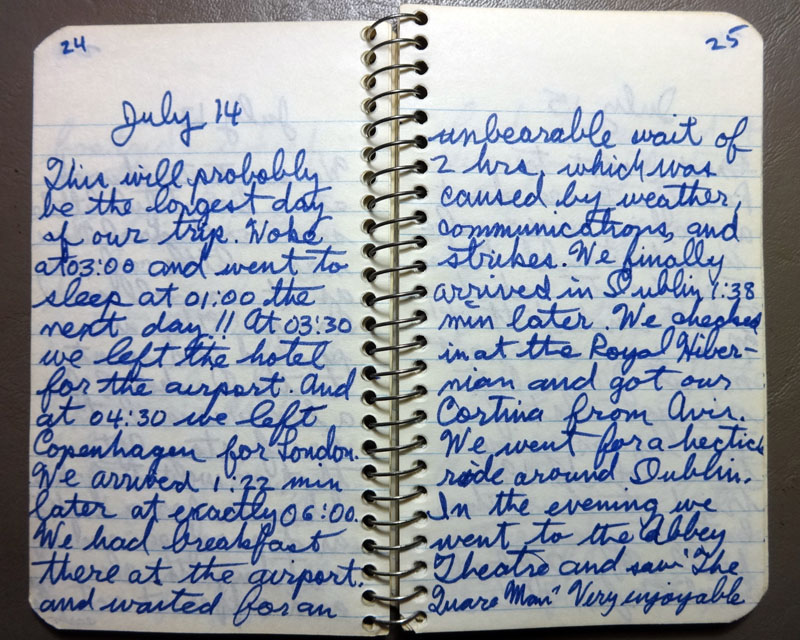 24
July 14
This will probobly
be the longest day
of our trip. Woke
at 03:00 and went to
sleep at 01:00 the
next day!! At 03:30
we left the hotel
for the airport. And
at 04:30 we left
Copenhagen for London.
We arrived 1:22 min
later at exactly 06:00.
We had breakfast
there at the airport.
and waited for an
25
unbearable wait of
2 hrs, which was
caused by weather,
communications, and
strikes. We finally
arrived in Dublin 1:38
min later. We checked
in at the Royal Hiber-
nian and got our
Cortina from Avis.
We went for a hectick
ride around Dublin.
In the evening we
went to the Abbey
Theatre and saw "The
Quare Man" Very enjoyable